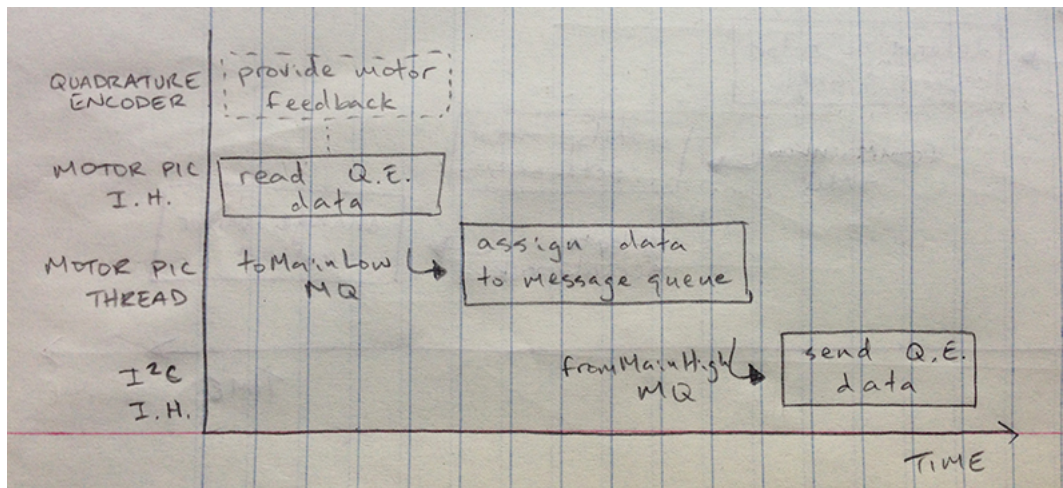 QUADRATURE
ENCODER
provide motor
feedback
MOTOR PIC
I.H.
read Q.E.
data
MOTOR PIC
THREAD
toMainLow
MQ
assign data
to message queue
I²C
I.H.
fromMainHigh
MQ
send Q.E.
data
TIME